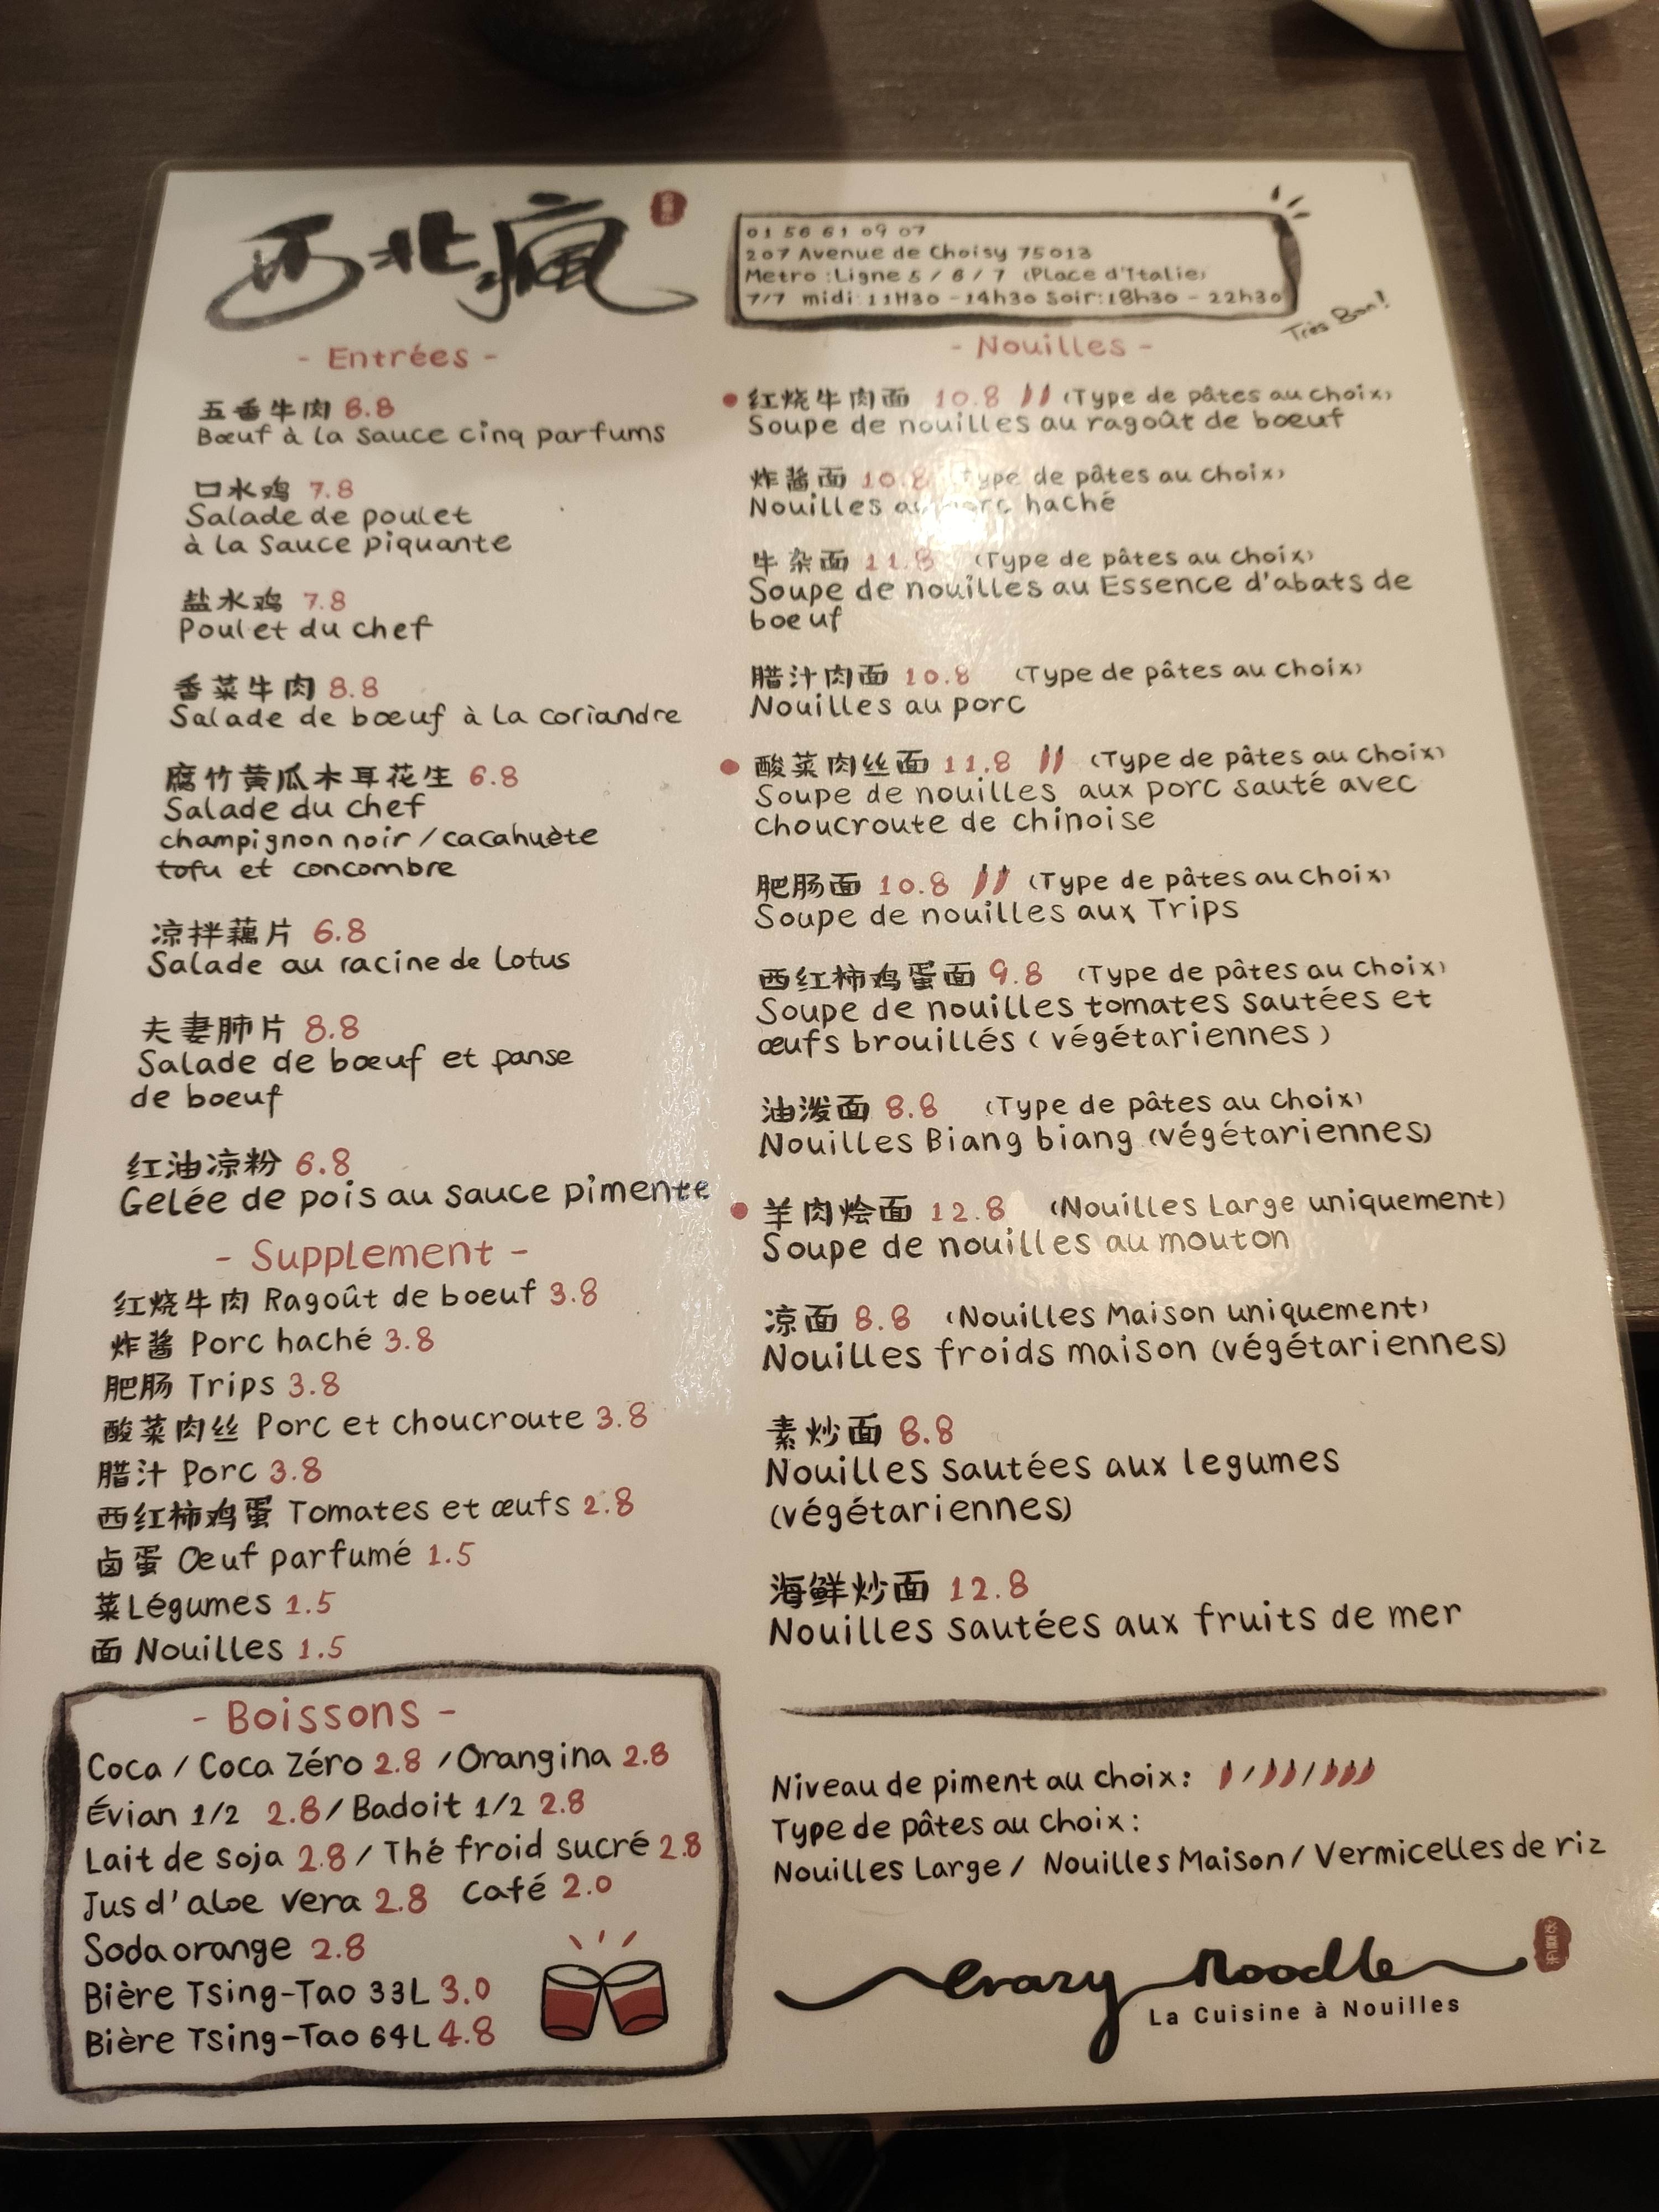 西北瘋
01 56 61 09 07
207 Avenue de Choisy 75013
Metro :Ligne 5 / 6 / 7 (Place d'Italie)
7/7 midi:11H30 -14h30 Soir:18h30 - 22h30
Très Bon!
- Entrées -
五香牛肉 8.8
Bœuf à la Sauce cinq parfums
口水鸡 7.8
Salade de poulet
à la Sauce piquante
盐水鸡 7.8
Poulet du chef
香菜牛肉 8.8
Salade de bœuf à la coriandre
腐竹黄瓜木耳花生 6.8
Salade du chef
champignon noir / cacahuète
tofu et concombre
凉拌藕片 6.8
Salade au racine de Lotus
夫妻肺片 8.8
Salade de bœuf et panse
de boeuf
红油凉粉 6.8
Gelée de pois au sauce pimente
- Supplement -
红烧牛肉 Ragoût de boeuf 3.8
炸酱 Porc haché 3.8
肥肠 Trips 3.8
酸菜肉丝 Porc et choucroute 3.8
腊汁 Porc 3.8
西红柿鸡蛋 Tomates et œufs 2.8
卤蛋 Œuf parfumé 1.5
菜 Légumes 1.5
面 Nouilles 1.5
- Boissons -
Coca / Coca Zéro 2.8 / Orangina 2.8
Évian 1/2 2.8 / Badoit 1/2 2.8
Lait de soja 2.8 / Thé froid sucré 2.8
Jus d'aloe vera 2.8 Café 2.0
Soda orange 2.8
Bière Tsing-Tao 33L 3.0
Bière Tsing-Tao 64L 4.8
- Nouilles -
红烧牛肉面 10.8 (Type de pâtes au choix)
Soupe de nouilles au ragoût de bœuf
炸酱面 10.8 (Type de pâtes au choix)
Nouilles au porc haché
牛杂面 11.8 (Type de pâtes au choix)
Soupe de nouilles au Essence d'abats de
boeuf
腊汁肉面 10.8 (Type de pâtes au choix)
Nouilles au porc
酸菜肉丝面 11.8 (Type de pâtes au choix)
Soupe de nouilles aux porc sauté avec
choucroute de chinoise
肥肠面 10.8 (Type de pâtes au choix)
Soupe de nouilles aux Trips
西红柿鸡蛋面 9.8 (Type de pâtes au choix)
Soupe de nouilles tomates sautées et
œufs brouillés ( végétariennes )
油泼面 8.8 (Type de pâtes au choix)
Nouilles Biang biang (végétariennes)
羊肉烩面 12.8 (Nouilles Large uniquement)
Soupe de nouilles au mouton
凉面 8.8 (Nouilles Maison uniquement)
Nouilles froids maison (végétariennes)
素炒面 8.8
Nouilles sautées aux legumes
(végétariennes)
海鲜炒面 12.8
Nouilles sautées aux fruits de mer
Niveau de piment au choix: / /
Type de pâtes au choix:
Nouilles Large / Nouilles Maison / Vermicelles de riz
Crazy Noodle
La Cuisine à Nouilles